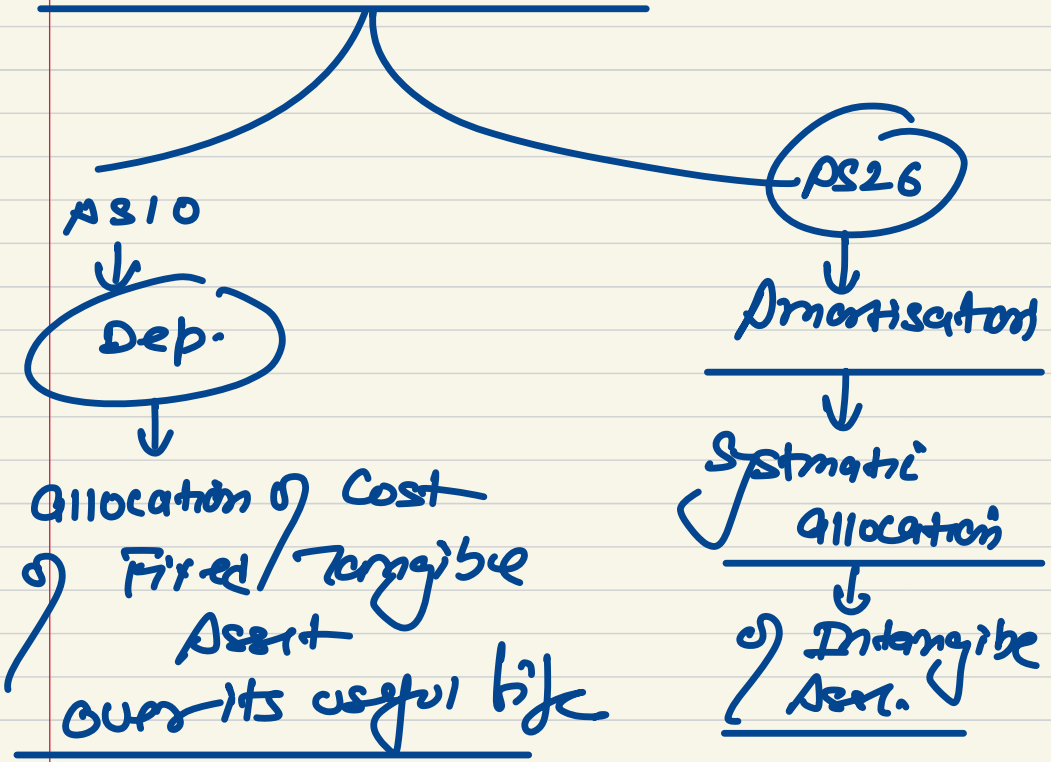 AS10
Dep.
allocation of Cost
of Fixed Tangible
Asset
over its useful life
AS26
Amortisation
Systmatic
allocation
of Intangibe
Asset.